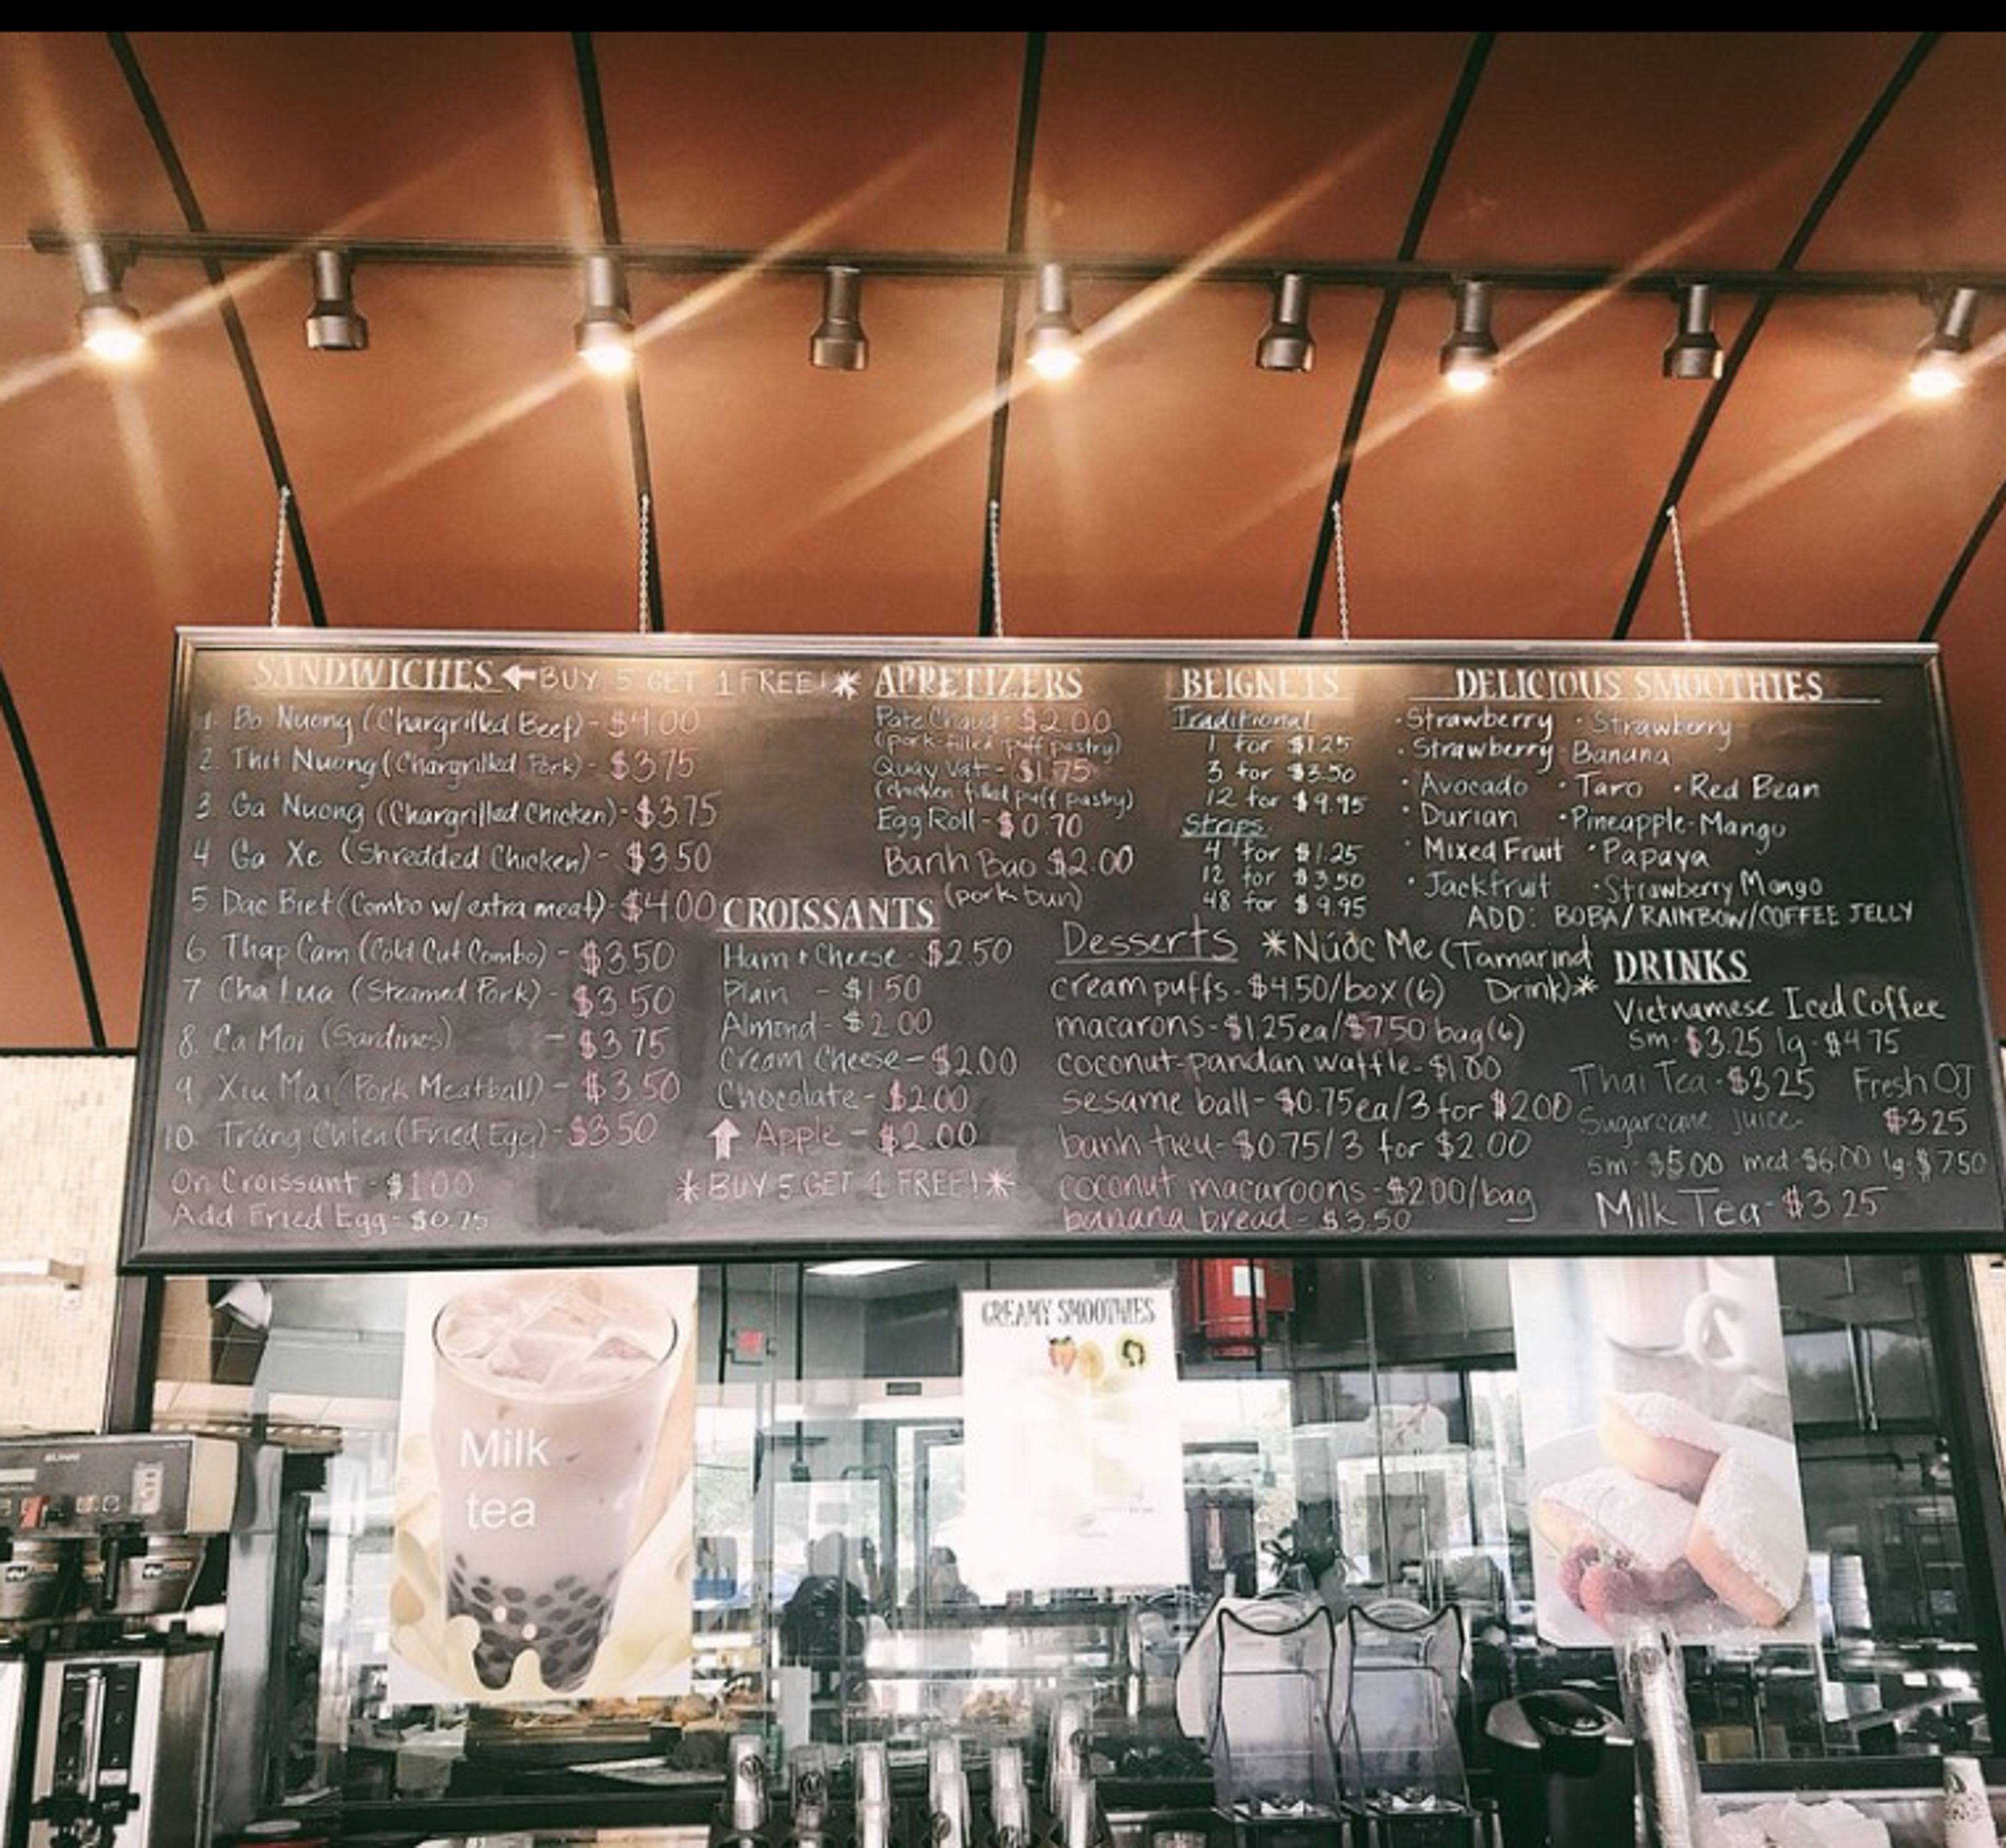 SANDWICHES ← BUY 5 GET 1 FREE! *
1. Bo Nuong (Chargrilled Beef) - $4.00
2. Thit Nuong (Chargrilled Pork) - $3.75
3 Ga Nuong (Chargrilled Chicken) - $3.75
4 Ga Xe (Shredded Chicken) - $3.50
5 Dac Biet (Combo w/ extra meat) - $4.00
6 Thap Cam (Cold Cut Combo) - $3.50
7 Cha Lua (Steamed Pork) - $3.50
8. Ca Moi (Sardines) - $3.75
9 Xiu Mai (Pork Meatball) - $3.50
10. Tráng Chien (Fried Egg) - $3.50
On Croissant - $1.00
Add Fried Egg - $0.75
APPETIZERS
Pate Chaud - $2.00
(pork-filled puff pastry)
Quay Vat - $1.75
(chicken filled puff pastry)
Egg Roll - $0.70
Banh Bao $2.00
(pork bun)
CROISSANTS
Ham + Cheese - $2.50
Plain - $1.50
Almond - $2.00
Cream Cheese - $2.00
Chocolate - $2.00
↑ Apple - $2.00
* BUY 5 GET 1 FREE! *
BEIGNETS
Traditional
1 for $1.25
3 for $3.50
12 for $9.95
Strips
4 for $1.25
12 for $3.50
48 for $9.95
DELICIOUS SMOOTHIES
• Strawberry • Strawberry
• Strawberry Banana
• Avocado • Taro • Red Bean
• Durian • Pineapple-Mango
• Mixed Fruit • Papaya
• Jackfruit • Strawberry Mango
ADD: BOBA/RAINBOW/COFFEE JELLY
Desserts * Núóc Me (Tamarind
Drink) *
cream puffs - $4.50/box (6)
macarons - $1.25ea/$7.50 bag (6)
coconut-pandan waffle - $1.00
sesame ball - $0.75ea/3 for $2.00
banh tieu - $0.75/3 for $2.00
coconut macaroons - $2.00/bag
banana bread - $3.50
DRINKS
Vietnamese Iced Coffee
sm - $3.25 lg - $4.75
Thai Tea - $3.25 Fresh OJ
$3.25
Sugarcane Juice -
sm - $5.00 med - $6.00 lg - $7.50
Milk Tea - $3.25
Milk
tea
CREAMY SMOOTHIES
BUNN